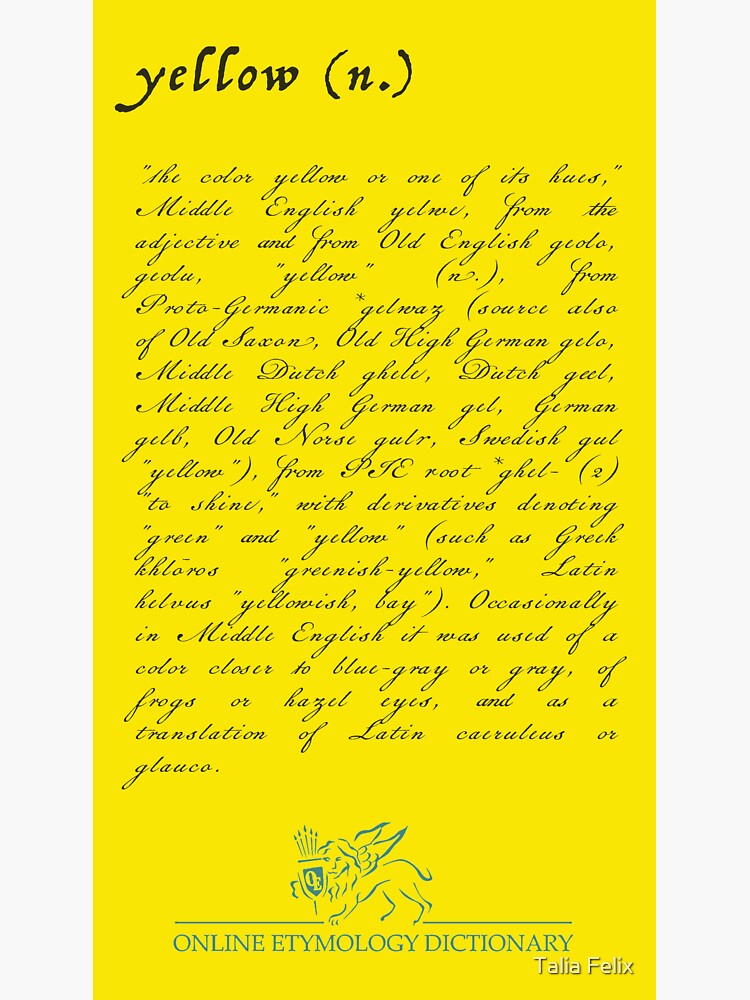 yellow (n.)
"the color yellow or one of its hues,"
Middle English yelwe, from the
adjective and from Old English geolo,
geolu, "yellow" (n.), from
Proto-Germanic *gelwaz (source also
of Old Saxon, Old High German gelo,
Middle Dutch ghele, Dutch geel,
Middle High German gel, German
gelb, Old Norse gulr, Swedish gul
"yellow"), from PIE root *ghel- (2)
"to shine," with derivatives denoting
"green" and "yellow" (such as Greek
khlōros "greenish-yellow," Latin
helvus "yellowish, bay"). Occasionally
in Middle English it was used of a
color closer to blue-gray or gray, of
frogs or hazel eyes, and as a
translation of Latin caeruleus or
glauco.
OE
ONLINE ETYMOLOGY DICTIONARY
Talia Felix